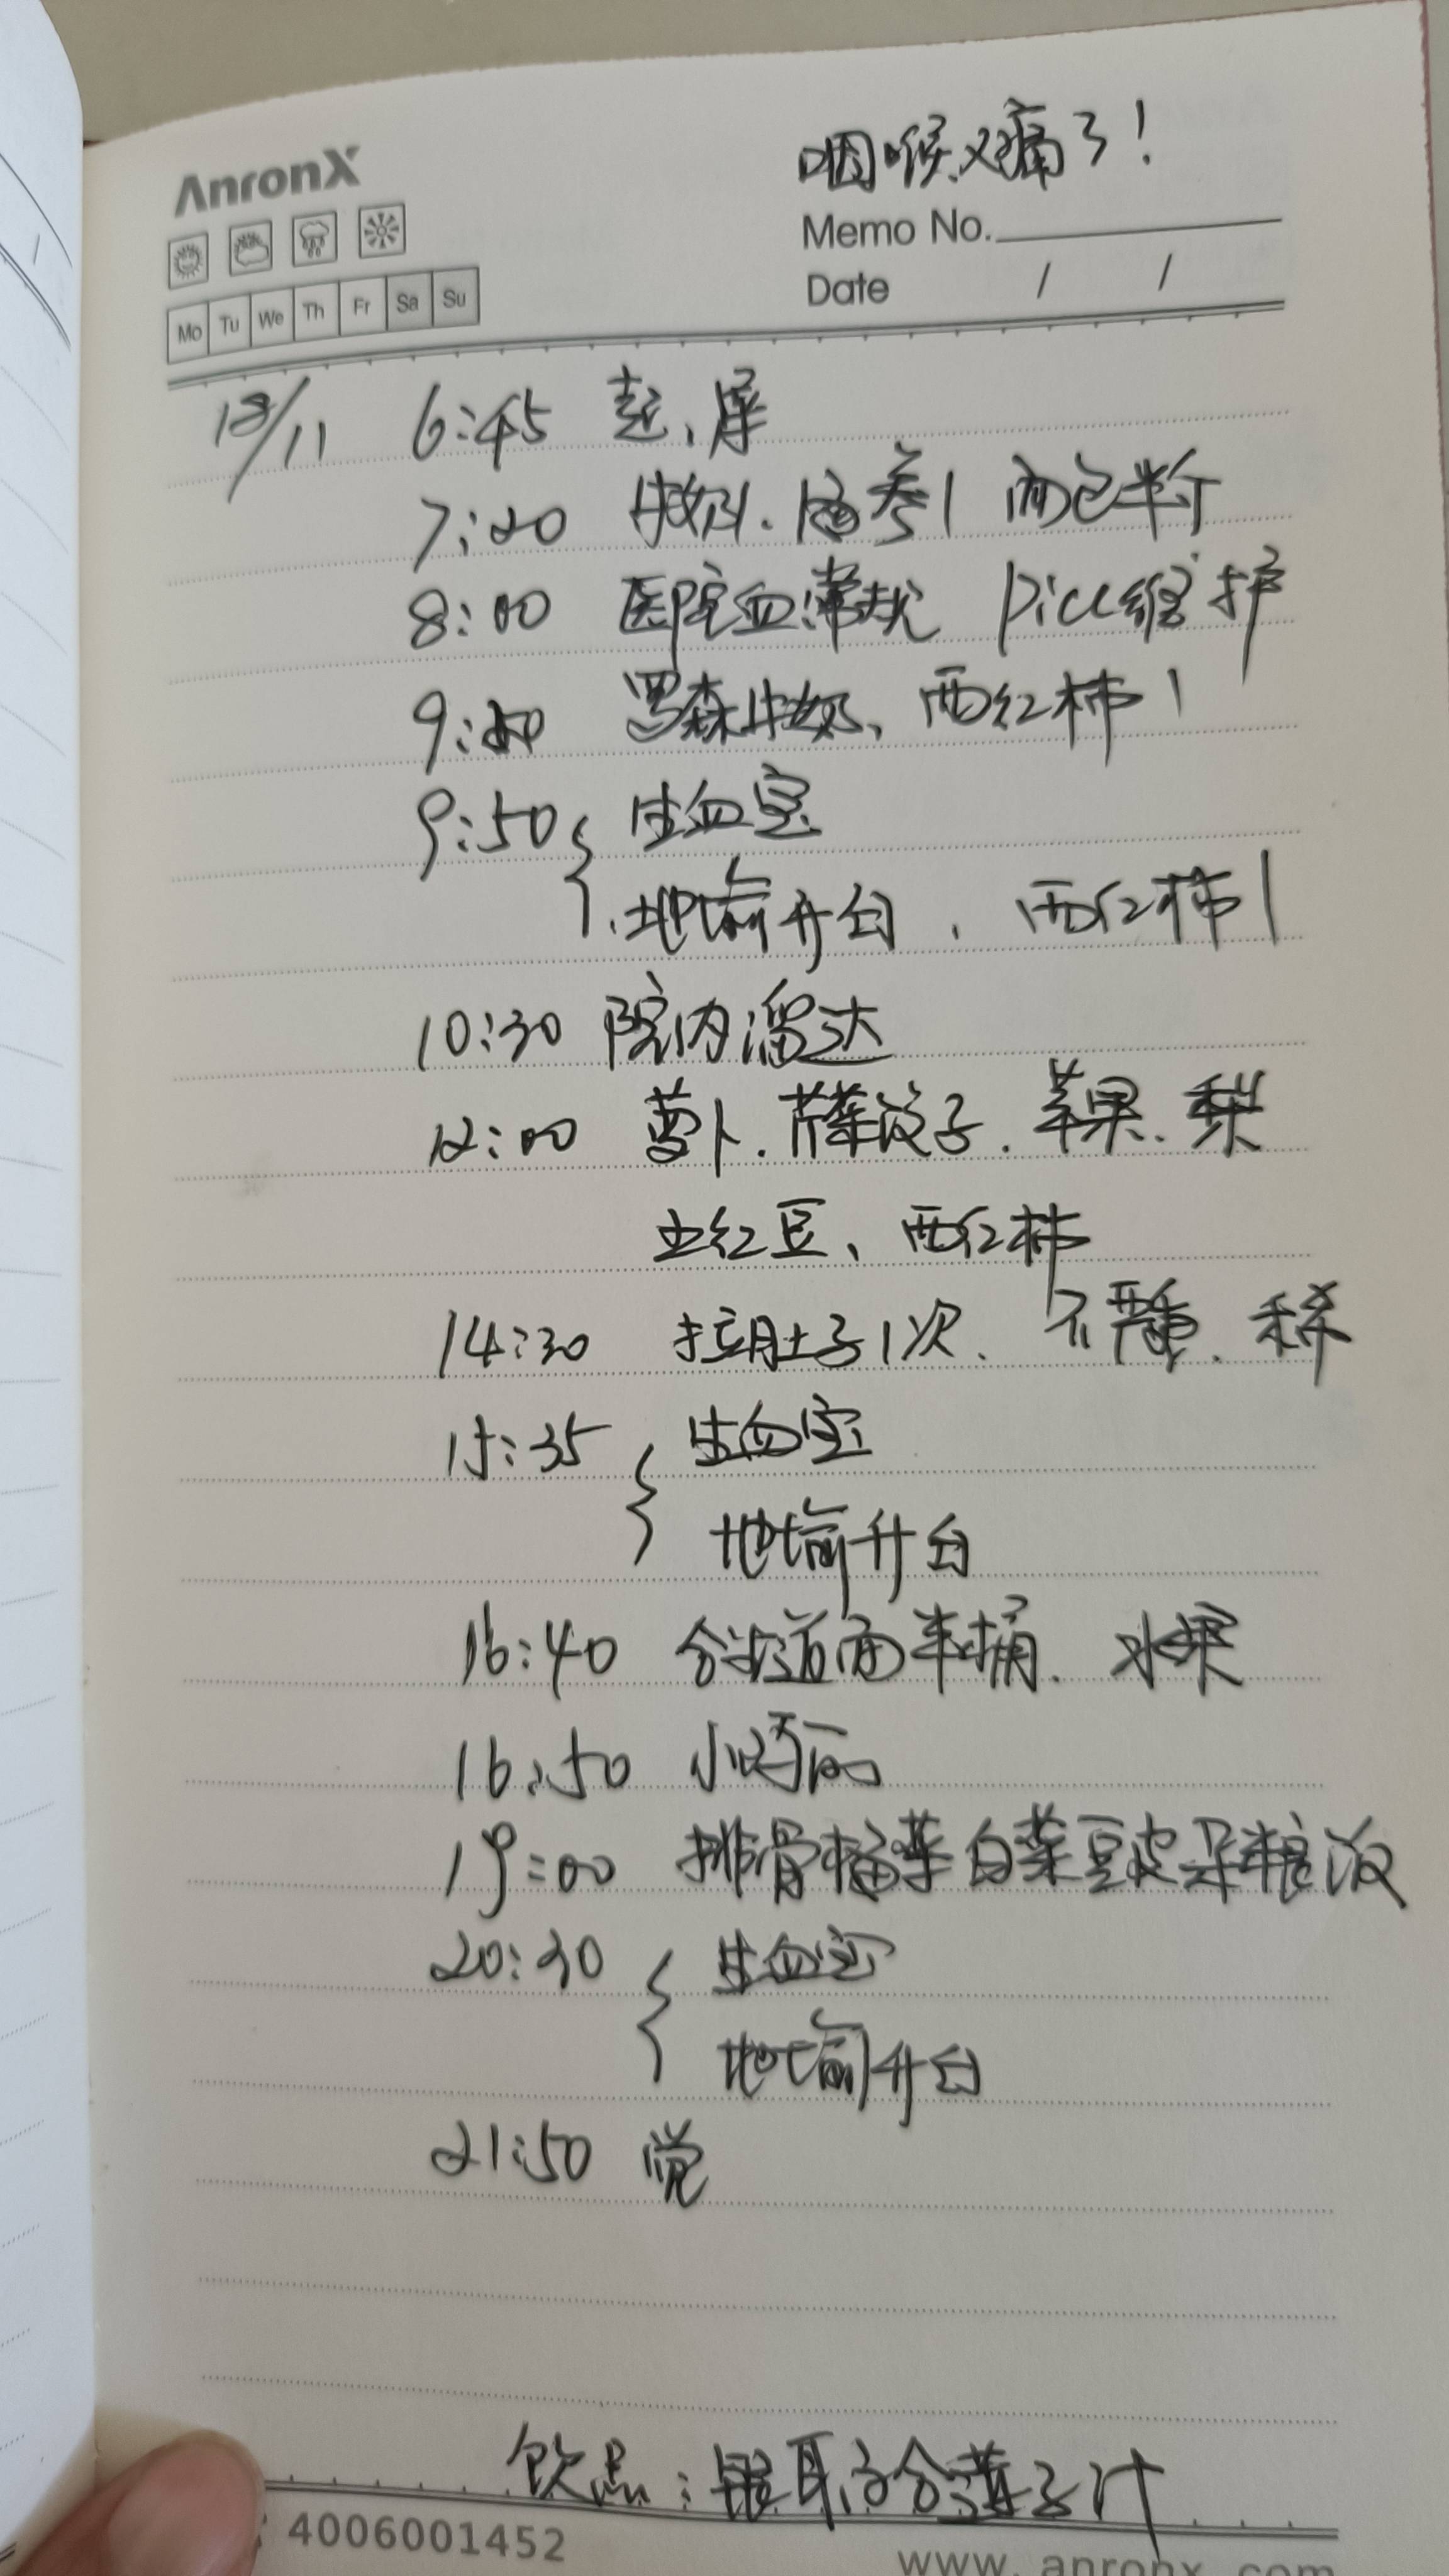 AnronX
咽喉又痛了!
Memo No.
Date / /
Mo Tu We Th Fr Sa Su
18/11 6:45 起、屎
7:20 牛奶、海参1 面包半个
8:00 医院血常规 picc维护
9:20 罗森牛奶、西红柿1
9:50 生血宝
地榆升白、西红柿1
10:30 院内溜达
12:00 萝卜、芹菜饺子、苹果、梨
五红豆、西红柿
14:30 拉肚子1次、不严重、稀
15:35 生血宝
地榆升白
16:40 合味道面半桶、水果
16:50 小呀
19:00 排骨 白菜豆皮杂粮饭
20:30 生血宝
地榆升白
21:50 觉
饮品:银耳百合莲子汁
4006001452
www.anronx.com